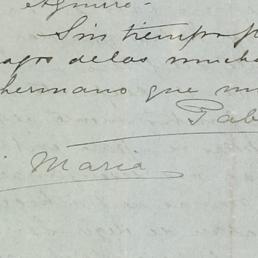 Aguirre.
Sin tiempo p
agos de las mucha
hermano que m
Pab
Maria